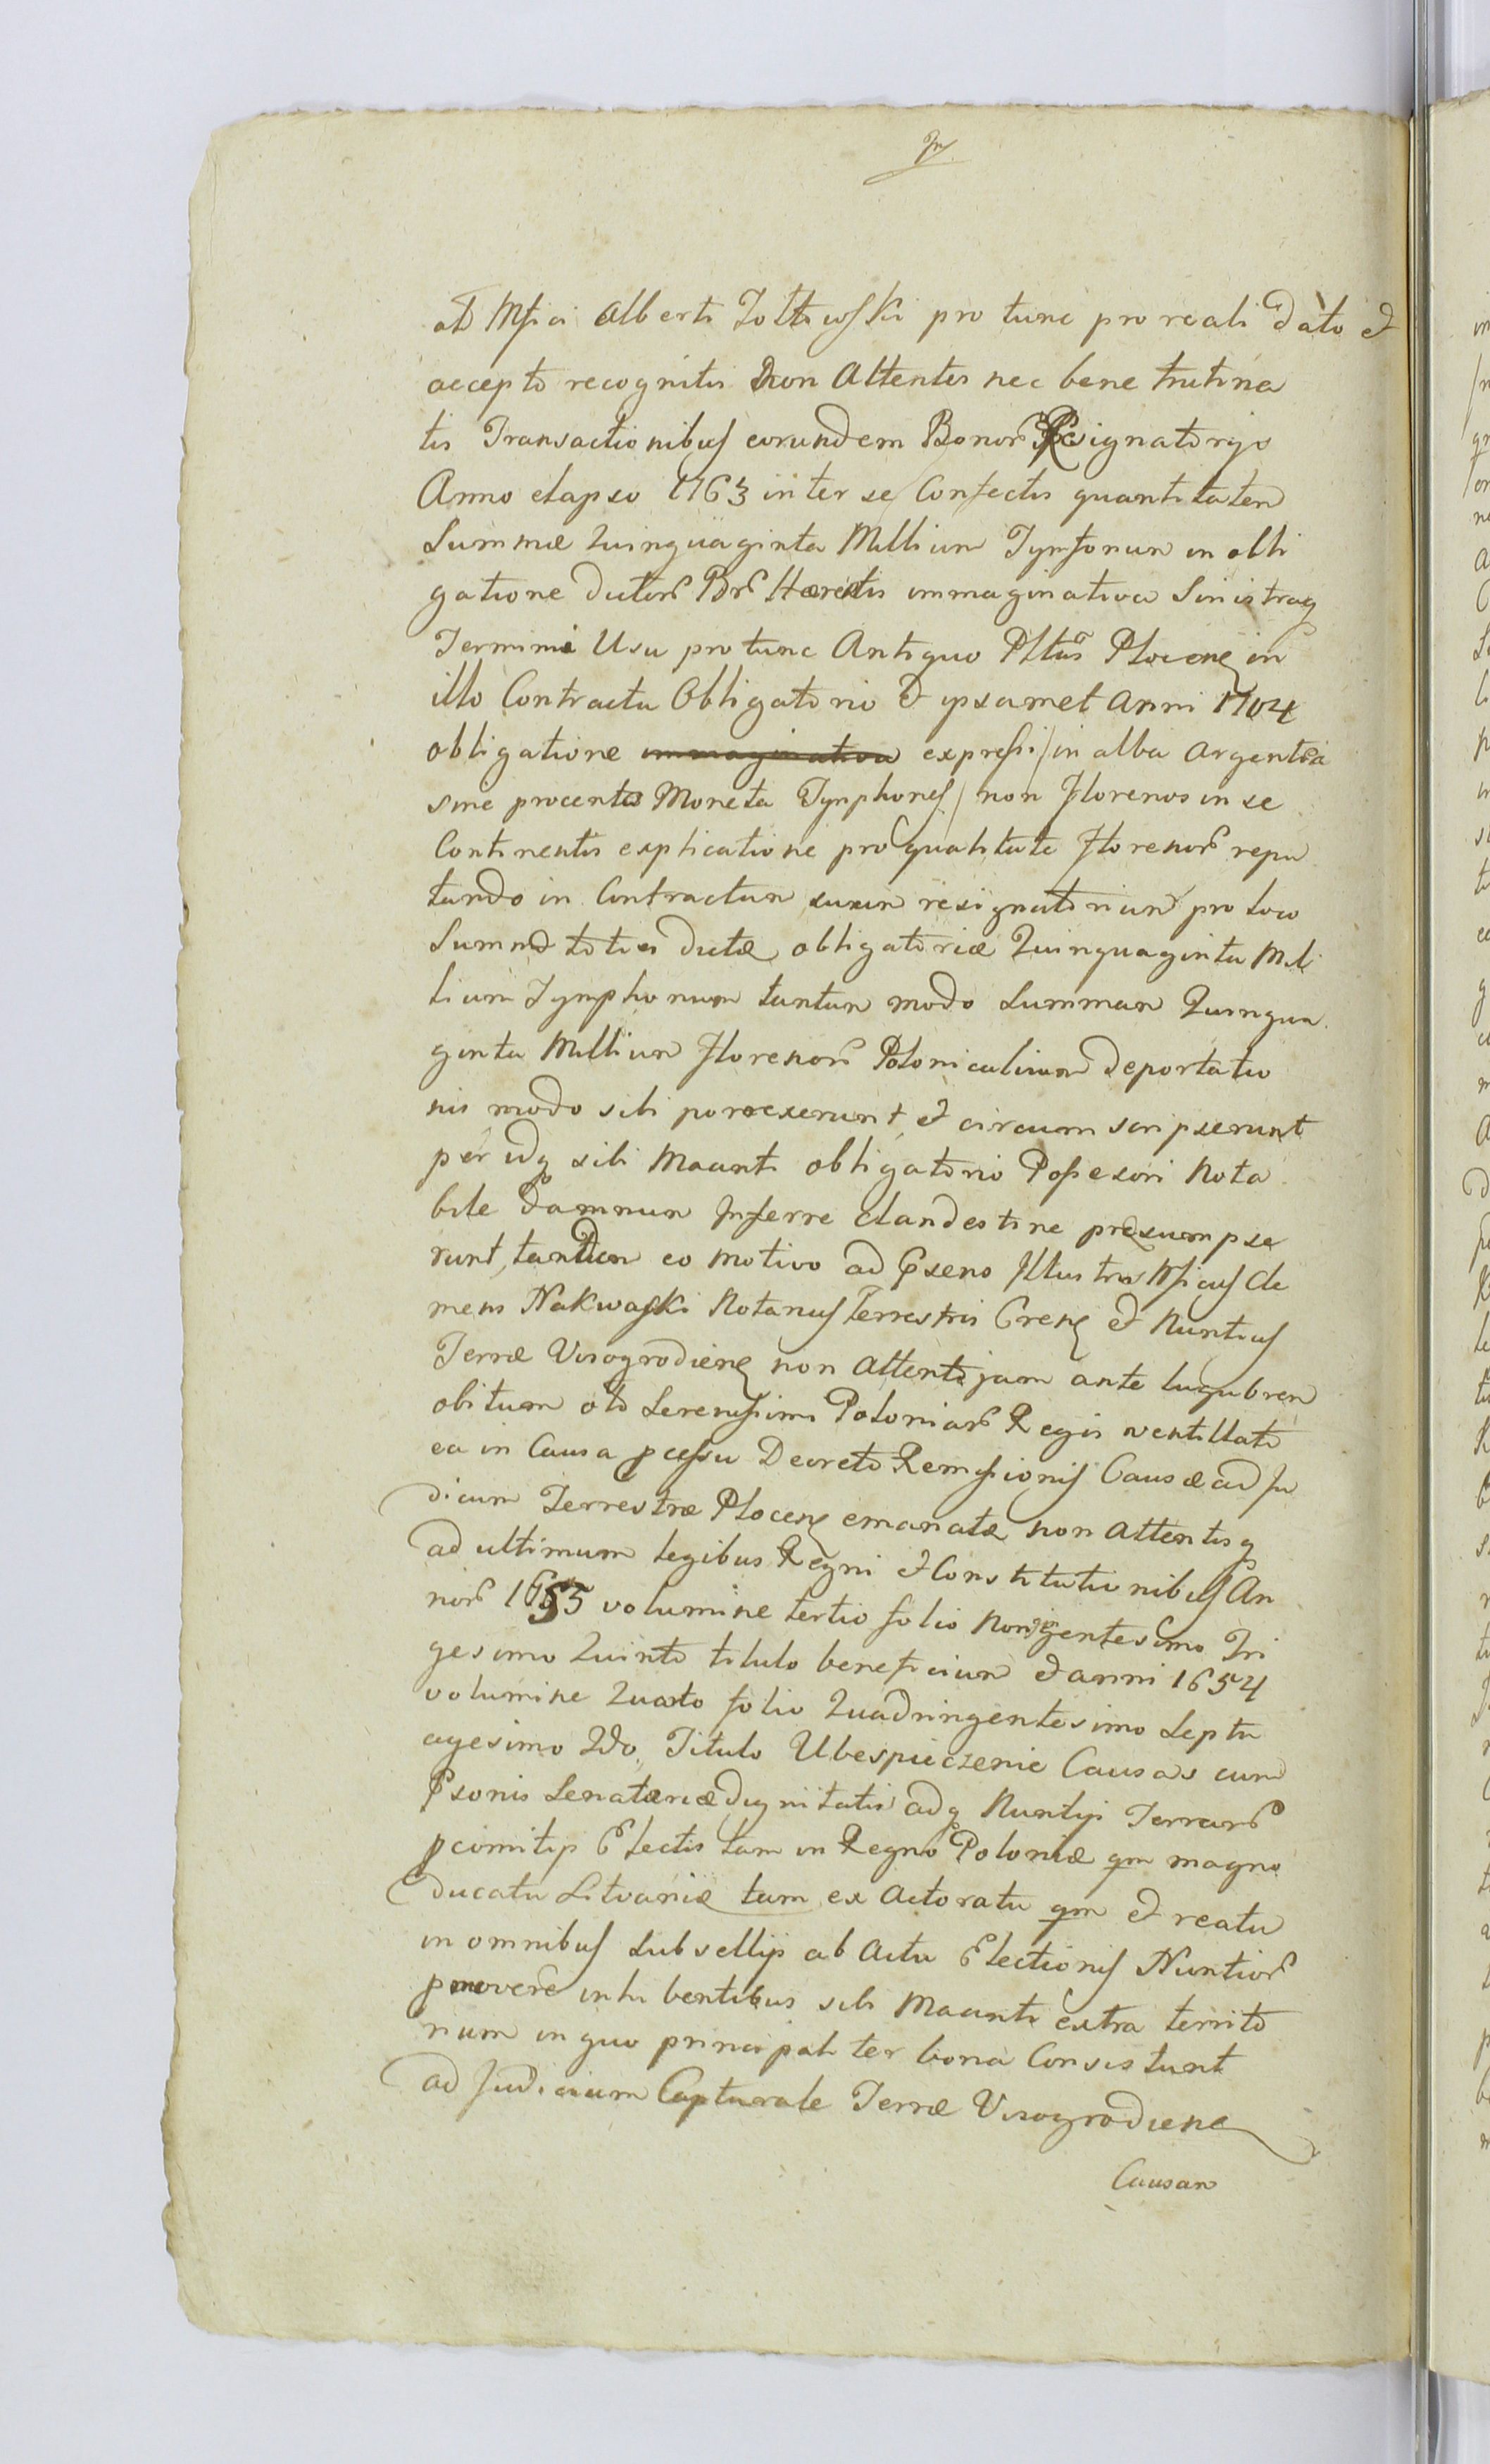 In
ad Mfici Alberti Zołtowski pro tunc pro reali dato et
accepto recognitis non Attentis nec bene trutina
tis Transactionibus eorundem Bonor Resignatorys
Anno elapso 1763 inter se Confectis quantitatem
Summæ Quinquaginta Millium Tynfonum in obli
gatione dictor Br Hæredis immaginativa Sinistraq
Termini Usu pro tunc Antiquo Pltus Plocene in
illo Contractu Obligatorio et ipsamet Anni 1704
obligatione immaginativa expressi / in alba Argentea
sine procento Moneta Tynphones / non Florenos in se
Continentis explicatione pro qualitate Florenor repu
tando in Contractum suum resignatorium pro loco
Summæ toties dictæ obligatoriæ Quinquaginta Mil
lium Tymphonum tantum modo Summam Quinqua
ginta Millium Florenor Polonicalium deportatio
nis modo sibi porrexerunt et circumscripserunt
per idq sibi Maanti obligatorio Possesori nota
bile damnum Inferre clandestine præsumpse
runt, tandem eo motivo ad Psens Illustris Mficus Cle
mens Nakwaski Notarius Terrestris Crene et Nuntius
Terræ Visogrodiene non Attento jam ante lugubrem
obitum olo Serenissimi Poloniar Regis ventillato
ea in Causa pcessu Decreto Remissionis Causæ ad Ju
dicium Terrestræ Plocene emanatæ non Attentisq
ad ultimum legibus Regni et Constitutionibus An
nor 1635 volumine tertio folio Nongentesimo Tri
gesimo Quinto titulo beneficium et anni 1654
volumine Quarto folio Quadringentesimo Septu
agesimo 2do, Titulo Ubespieczenie Causas cum
Psonis Senatoriæ dignitatis adq Nuntys Terrar
pcomitys Electis tam in Regno Poloniæ qm magno
Ducatu Litvaniæ tam ex Actoratu qm et reatu
in omnibus Subsellys ab Actu Electionis Nuntior
pmovere inhibentibus sibi Maanti extra territo
rium in quo principaliter bona Consistunt
ad Judicium Capturale Terræ Visogrodiene
Causam